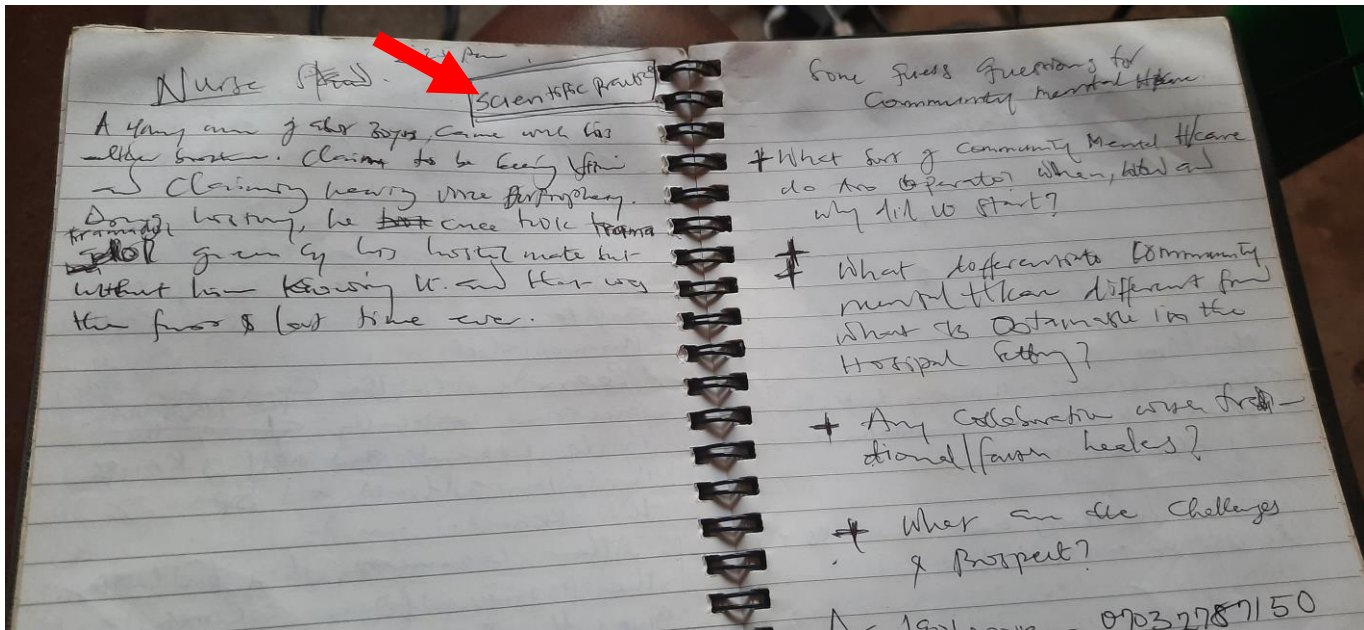 Nurse
Scientific practice
A young man of abt 30yrs, came with his
elder brother. Claiming to be being
and Claiming hearing voice
During history, he once took
tramadol given by his hostel mate but
without him knowing it. and that was
the first & last time ever.
Some Guess Questions for
Community mental Hcare
+ What sort of Community Mental Hcare
do operate? When, and
why did U start?
+ What Community
mental Hcare different from
what is Obtainable in the
Hospital Setting?
+ Any Collaboration with tradi-
tional/faith healers?
+ What are the Challenges
& Prospect?
07032787150